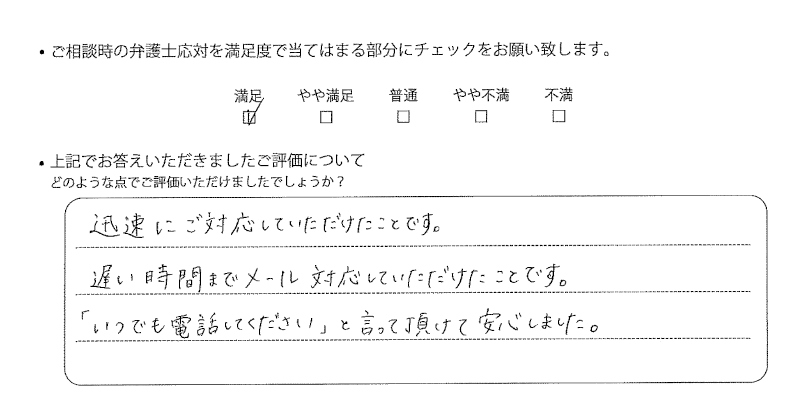 ・ご相談時の弁護士応対を満足度で当てはまる部分にチェックをお願い致します。
満足 やや満足 普通 やや不満 不満
☑ □ □ □ □
・上記でお答えいただきましたご評価について
どのような点でご評価いただけましたでしょうか？
迅速にご対応していただけたことです。
遅い時間までメール対応していただけたことです。
「いつでも電話してください」と言って頂けて安心しました。